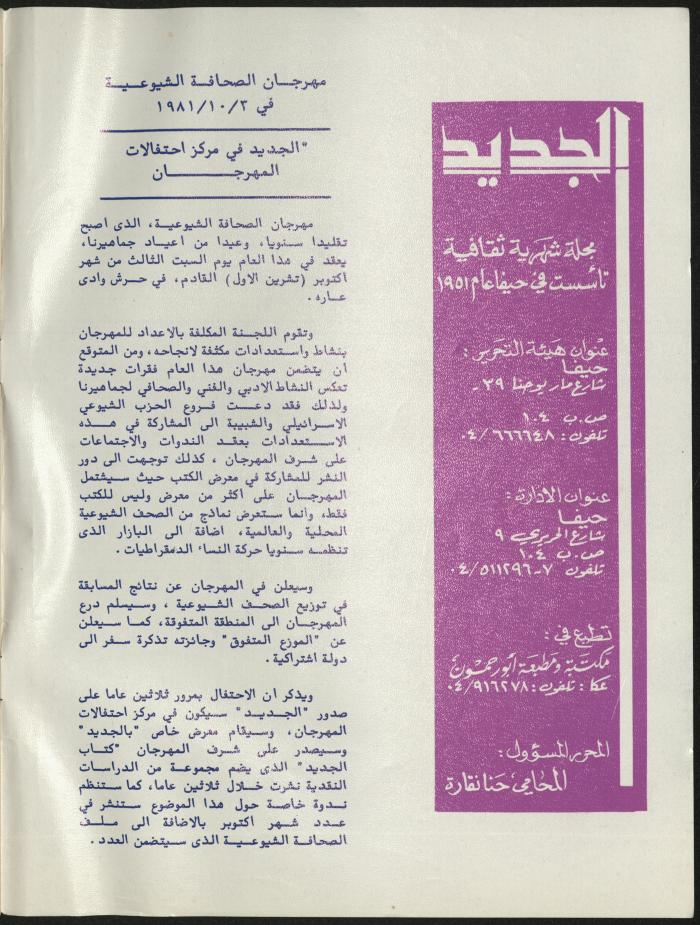 الجديد
مجلة شهرية ثقافية
تأسست في حيفا عام ١٩٥١
عنوان هيئة التحرير :
حيفا
شارع مار يوحنا ٣٩ -
ص.ب ١٠٤
تلفون : ٠٤/٦٦٦٦٤٨
عنوان الادارة :
حيفا
شارع الحريري ٩
ص.ب ١٠٤
تلفون ٧-٠٤/٥١١٢٩٦
تطبع في :
مكتبة ومطبعة أبو رحمون
عكا : تلفون : ٠٤/٩١٦٢٧٨
المحرر المسؤول :
المحامي حنا نقارة
مهرجـان الصحافـة الشيوعـيـة
في ١٩٨١/١٠/٣
"الجديد في مركز احتفالات
المهرجـــــــــان
مهرجان الصحافة الشيوعية، الذى اصبح
تقليدا سنويا، وعيدا من اعياد جماهيرنا،
يعقد في هذا العام يوم السبت الثالث من شهر
اكتوبر (تشرين الاول) القادم، في حرش وادى
عاره .
وتقوم اللجنة المكلفة بالاعداد للمهرجان
بنشاط واستعدادات مكثفة لانجاحه، ومن المتوقع
ان يتضمن مهرجان هذا العام فقرات جديدة
تعكس النشاط الادبي والفني والصحافي لجماهيرنا
ولذلك فقد دعت فروع الحزب الشيوعي
الاسرائيلي والشبيبة الى المشاركة في هذه
الاستعدادات بعقد الندوات والاجتماعات
على شرف المهرجان ، كذلك توجهت الى دور
النشر للمشاركة في معرض الكتب حيث سيشتمل
المهرجان على اكثر من معرض وليس للكتب
فقط، وانما ستعرض نماذج من الصحف الشيوعية
المحلية والعالمية، اضافة الى البازار الذى
تنظمه سنويا حركة النساء الدمقراطيات .
وسيعلن في المهرجان عن نتائج المسابقة
في توزيع الصحف الشيوعية ، وسيسلم درع
المهرجان الى المنطقة المتفوقة، كما سيعلن
عن "الموزع المتفوق" وجائزته تذكرة سفر الى
دولة اشتراكية .
ويذكر ان الاحتفال بمرور ثلاثين عاما على
صدور "الجديد" سيكون في مركز احتفالات
المهرجان، وسيقام معرض خاص "بالجديد"
وسيصدر على شرف المهرجان "كتاب
الجديد" الذى يضم مجموعة من الدراسات
النقدية نشرت خلال ثلاثين عاما، كما ستنظم
ندوة خاصة حول هذا الموضوع ستنشر في
عدد شهر اكتوبر بالاضافة الى ملف
الصحافة الشيوعية الذى سيتضمن العدد .